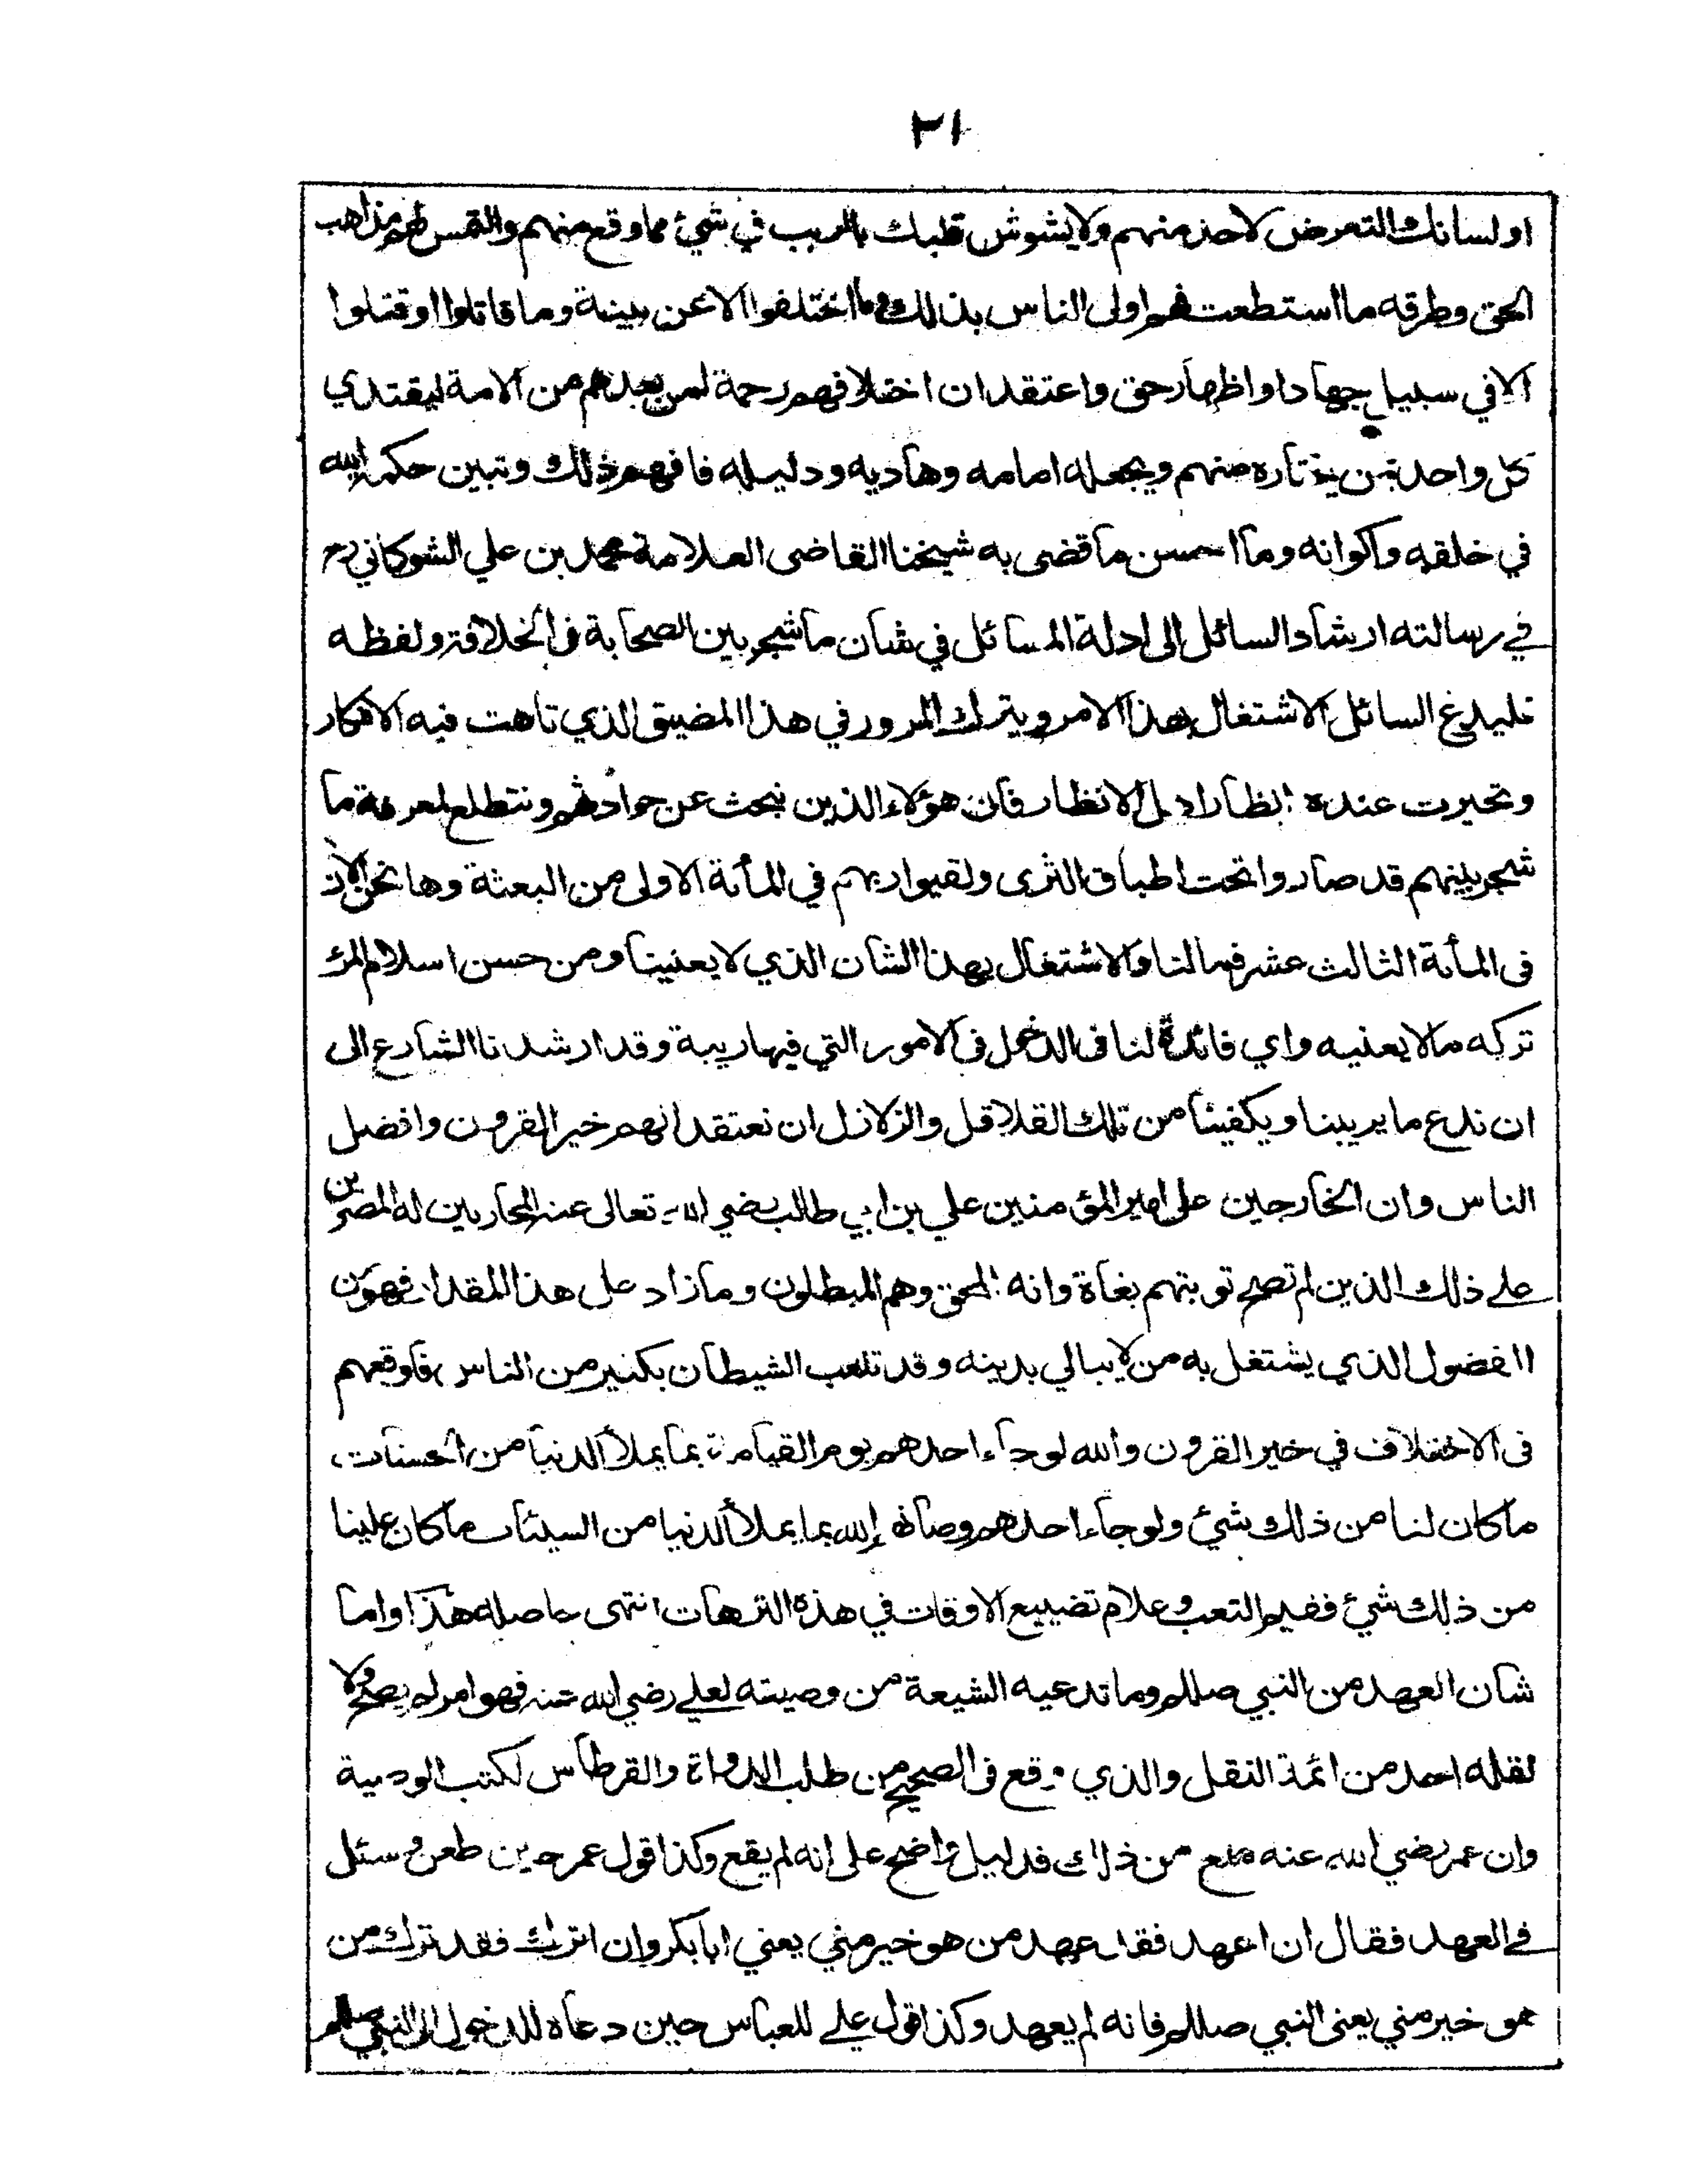 ٢١
او لسانك والتعرض لاحد منهم ولا يشوش قلبك بالريب في شيء مما وقع منهم والتمس لهم مذاهب
الحق وطرقه ما استطعت فهم اولى الناس بذلك وما اختلفوا الا عن بينة وما قاتلوا او قتلوا
الا في سبيل جهاد او اظهار حق واعتقد ان اختلافهم رحمة لمن بعدهم من الامة ليقتدي
كل واحد بمن يختاره منهم ويجعله امامه وهاديه ودليله فافهم ذلك وتبين حكم الله
في خلقه واكوانه وما احسن ما قضى به شيخنا القاضى العلامة محمد بن علي الشوكاني رح
في رسالته ارشاد السائل الى ادلة المسائل في شان ما شجر بين الصحابة فى الخلافة ولفظه
فليدع السائل الاشتغال بهذا الامر ويترك المرور في هذا المضيق الذي تاهت فيه الافكار
وتحيرت عنده انظار اهل الانظار فان هؤلاء الذين نبحث عن حوادثهم ونتطلع لمعرفة ما
شجر بينهم قد صاروا تحت اطباق الثرى ولقوا ربهم في المأة الاولى من البعثة وها نحن الان
فى المأة الثالث عشر فما لنا والاشتغال بهذا الشان الذي لا يعنينا ومن حسن اسلام المرء
تركه ما لا يعنيه واي فائدة لنا فى الدخول فى الامور التي فيها ريبة وقد ارشدنا الشارع الى
ان ندع ما يريبنا ويكفينا من تلك القلاقل والزلازل ان نعتقد انهم خير القرون وافضل
الناس وان الخارجين على امير المؤمنين علي بن ابي طالب رضي الله تعالى عنه المحاربين له المصرين
على ذلك الذين لم تصح توبتهم بغاة وانه المحق وهم المبطلون وما زاد على هذا المقدار فهو من
الفضول الذي يشتغل به من لا يبالي بدينه وقد تلعب الشيطان بكثير من الناس فاوقعهم
فى الاختلاف في خير القرون والله لو جاء احدهم يوم القيامة بما يملأ الدنيا من الحسنات
ما كان لنا من ذلك بشيء ولو جاء احدهم وصانه الله بما يملأ الدنيا من السيئات ما كان علينا
من ذلك شيء ففيم التعب وعلام تضييع الاوقات في هذه الترهات انتهى حاصله هذا واما
شان العهد من النبي صللم وما تدعيه الشيعة من وصيته لعلي رضي الله عنه فهو امر لم يصح ولا
نقله احد من ائمة النقل والذي وقع فى الصحيح من طلب الدواة والقرطاس لكتب الوصية
وان عمر رضي الله عنه منع من ذلك فدليل واضح على انه لم يقع وكذا قول عمر حين طعن وسئل
في العهد فقال ان اعهد فقد عهد من هو خير مني يعني ابا بكر وان اترك فقد ترك من
هو خير مني يعنى النبي صللم فانه لم يعهد وكذا قول علي للعباس حين دعاه للدخول الى النبي صللم